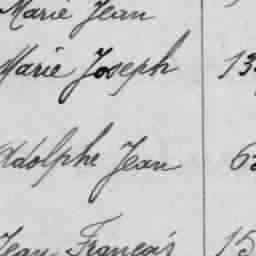 Marie Jean
Marie Joseph 13
Adolphe Jean 6
Jean François 15